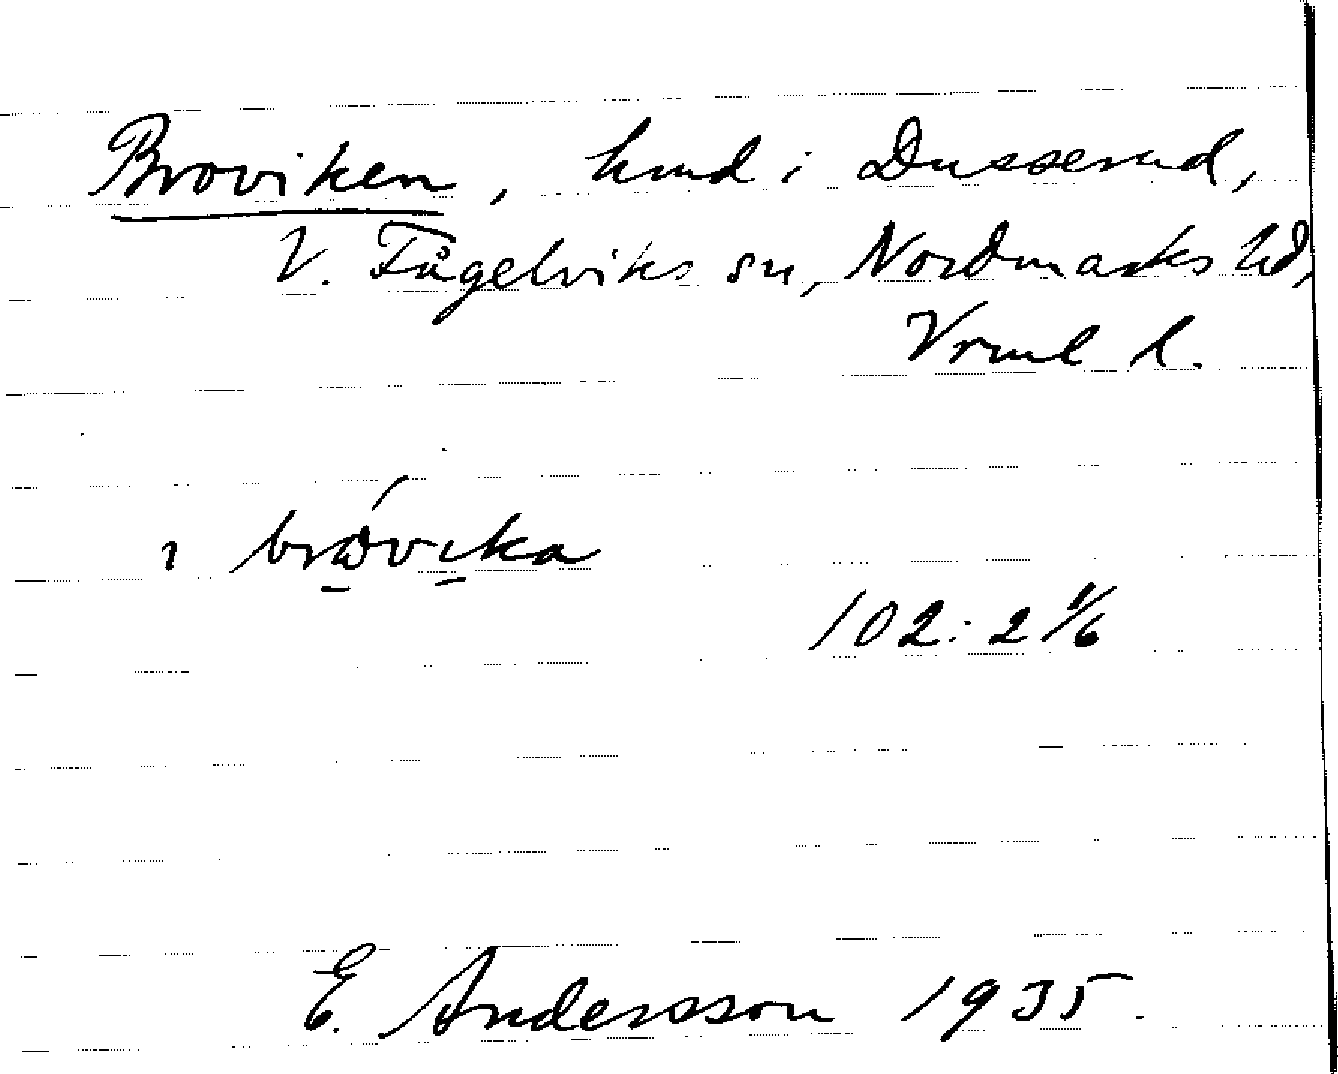 Broviken, hmd i Dusserud,
V. Fågelviks sn, Nordmarks hd,
Vrml l.
ı brωvıka
102: 2 1/6
E. Andersson 1935.